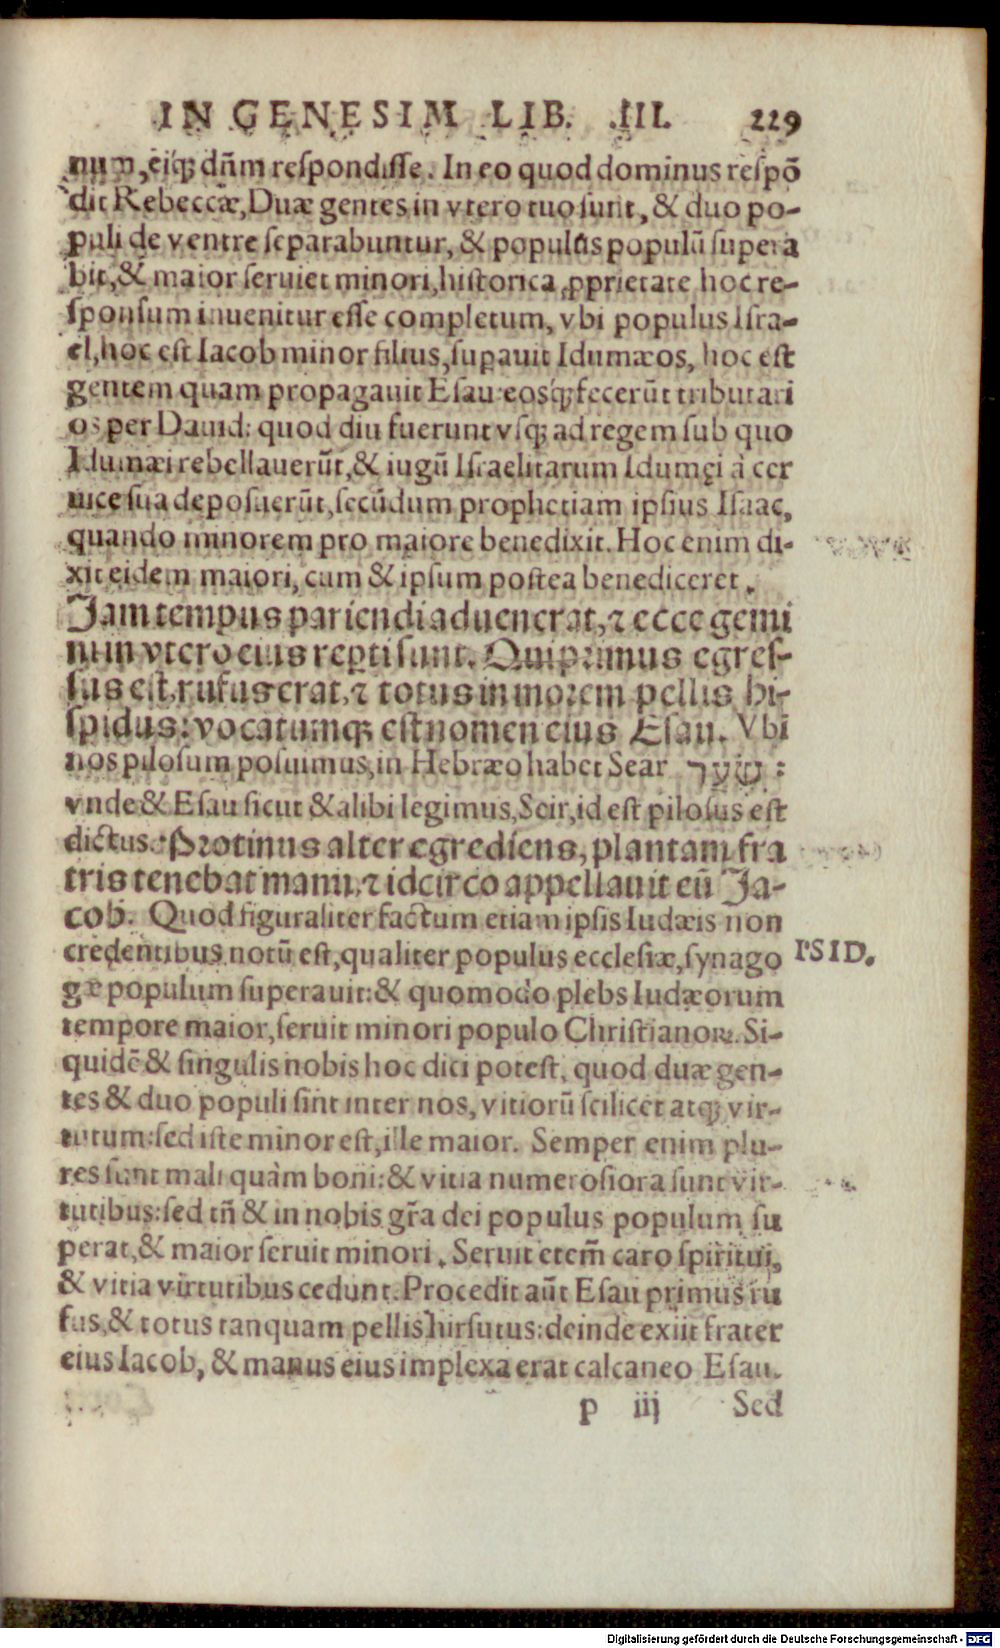 IN GENESIM LIB. III. 229
num, eiq; dn̄m respondisse. In eo quod dominus respō
dit Rebeccæ, Duæ gentes in vtero tuo sunt, & duo po-
puli de ventre separabuntur, & populus populū supera
bit, & maior seruiet minori, historica ꝓprietate hoc re-
sponsum inuenitur esse completum, vbi populus Isra-
el, hoc est Iacob minor filius, suꝑauit Idumæos, hoc est
gentem quam propagauit Esau: eosq́; fecerūt tributari
os per Dauid: quod diu fuerunt vsq; ad regem sub quo
Idumæi rebellauerūt, & iugū Israelitarum Idumęi à cer
uice sua deposuerūt, secūdum prophetiam ipsius Isaac,
quando minorem pro maiore benedixit. Hoc enim di-
xit eidem maiori, cum & ipsum postea benediceret.
Jam tempus pariendi aduenerat, ⁊ ecce gemi
ni in vtero eius reꝑti sunt. Qui primus egres-
sus est, rufus erat, ⁊ totus in morem pellis hi-
spidus: vocatumq; est nomen eius Esau. Vbi
nos pilosum posuimus, in Hebræo habet Sear שער :
vnde & Esau sicut & alibi legimus, Seir, id est pilosus est
dictus. Protinus alter egrediens, plantam fra
tris tenebat manu, ⁊ idcirco appellauit eū Ja-
cob. Quod figuraliter factum etiam ipsis Iudæis non
credentibus notū est, qualiter populus ecclesiæ, synago
gæ populum superauit: & quomodo plebs Iudæorum
tempore maior, seruit minori populo Christianoꝝ. Si-
quidē & singulis nobis hoc dici potest, quod duæ gen-
tes & duo populi sint inter nos, vitiorū scilicet atq; vir-
tutum: sed iste minor est, ille maior. Semper enim plu-
res sunt mali quàm boni: & vitia numerosiora sunt vir-
tutibus: sed tn̄ & in nobis gr̄a dei populus populum su
perat, & maior seruit minori. Seruit etem̄ caro spiritui,
& vitia virtutibus cedunt. Procedit aūt Esau primus ru
fus, & totus tanquam pellis hirsutus: deinde exiit frater
eius Iacob, & manus eius implexa erat calcaneo Esau.
p iij Sed
ISID.
Digitalisierung gefördert durch die Deutsche Forschungsgemeinschaft - DFG